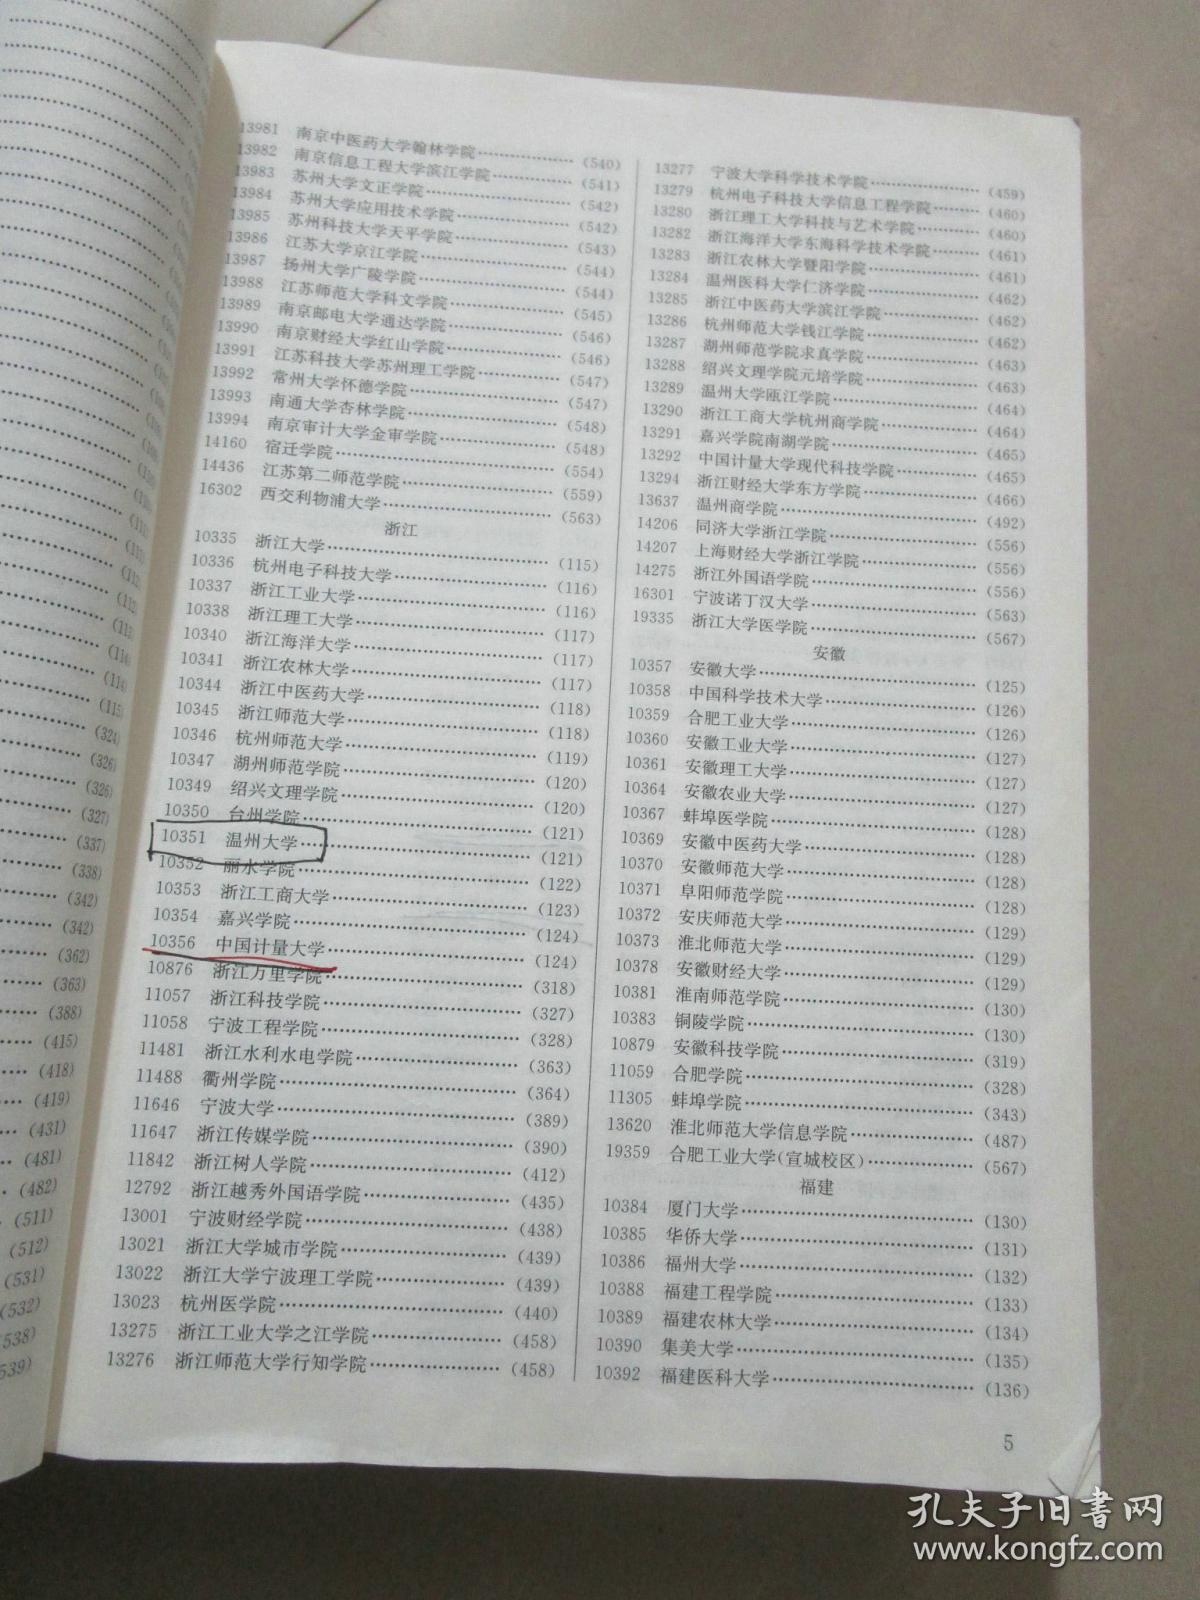 13981 南京中医药大学翰林学院 (540)
13982 南京信息工程大学滨江学院 (541)
13983 苏州大学文正学院 (542)
13984 苏州大学应用技术学院 (542)
13985 苏州科技大学天平学院 (543)
13986 江苏大学京江学院 (544)
13987 扬州大学广陵学院 (544)
13988 江苏师范大学科文学院 (545)
13989 南京邮电大学通达学院 (546)
13990 南京财经大学红山学院 (546)
13991 江苏科技大学苏州理工学院 (547)
13992 常州大学怀德学院 (547)
13993 南通大学杏林学院 (548)
13994 南京审计大学金审学院 (548)
14160 宿迁学院 (554)
14436 江苏第二师范学院 (559)
16302 西交利物浦大学 (563)
浙江
10335 浙江大学 (115)
10336 杭州电子科技大学 (116)
10337 浙江工业大学 (116)
10338 浙江理工大学 (117)
10340 浙江海洋大学 (117)
10341 浙江农林大学 (117)
10344 浙江中医药大学 (118)
10345 浙江师范大学 (118)
10346 杭州师范大学 (119)
10347 湖州师范学院 (120)
10349 绍兴文理学院 (120)
10350 台州学院 (121)
10351 温州大学 (121)
10352 丽水学院 (122)
10353 浙江工商大学 (123)
10354 嘉兴学院 (124)
10356 中国计量大学 (124)
10876 浙江万里学院 (318)
11057 浙江科技学院 (327)
11058 宁波工程学院 (328)
11481 浙江水利水电学院 (363)
11488 衢州学院 (364)
11646 宁波大学 (389)
11647 浙江传媒学院 (390)
11842 浙江树人学院 (412)
12792 浙江越秀外国语学院 (435)
13001 宁波财经学院 (438)
13021 浙江大学城市学院 (439)
13022 浙江大学宁波理工学院 (439)
13023 杭州医学院 (440)
13275 浙江工业大学之江学院 (458)
13276 浙江师范大学行知学院 (458)
13277 宁波大学科学技术学院 (459)
13279 杭州电子科技大学信息工程学院 (460)
13280 浙江理工大学科技与艺术学院 (460)
13282 浙江海洋大学东海科学技术学院 (461)
13283 浙江农林大学暨阳学院 (461)
13284 温州医科大学仁济学院 (462)
13285 浙江中医药大学滨江学院 (462)
13286 杭州师范大学钱江学院 (462)
13287 湖州师范学院求真学院 (463)
13288 绍兴文理学院元培学院 (463)
13289 温州大学瓯江学院 (464)
13290 浙江工商大学杭州商学院 (464)
13291 嘉兴学院南湖学院 (465)
13292 中国计量大学现代科技学院 (465)
13294 浙江财经大学东方学院 (466)
13637 温州商学院 (492)
14206 同济大学浙江学院 (556)
14207 上海财经大学浙江学院 (556)
14275 浙江外国语学院 (556)
16301 宁波诺丁汉大学 (563)
19335 浙江大学医学院 (567)
安徽
10357 安徽大学 (125)
10358 中国科学技术大学 (126)
10359 合肥工业大学 (126)
10360 安徽工业大学 (127)
10361 安徽理工大学 (127)
10364 安徽农业大学 (127)
10367 蚌埠医学院 (128)
10369 安徽中医药大学 (128)
10370 安徽师范大学 (128)
10371 阜阳师范学院 (128)
10372 安庆师范大学 (129)
10373 淮北师范大学 (129)
10378 安徽财经大学 (129)
10381 淮南师范学院 (130)
10383 铜陵学院 (130)
10879 安徽科技学院 (319)
11059 合肥学院 (328)
11305 蚌埠学院 (343)
13620 淮北师范大学信息学院 (487)
19359 合肥工业大学(宣城校区) (567)
福建
10384 厦门大学 (130)
10385 华侨大学 (131)
10386 福州大学 (132)
10388 福建工程学院 (133)
10389 福建农林大学 (134)
10390 集美大学 (135)
10392 福建医科大学 (136)
5
孔夫子旧书网
www.kongfz.com